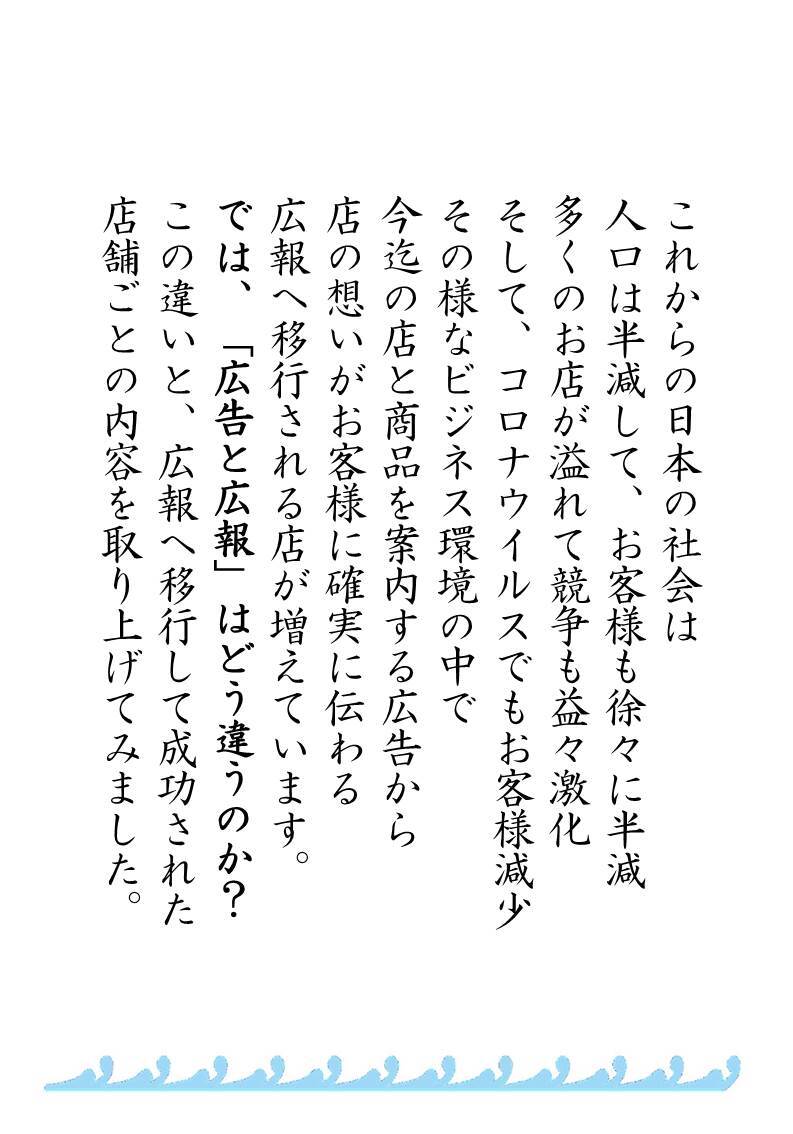 これからの日本の社会は
人口は半減して、お客様も徐々に半減
多くのお店が溢れて競争も益々激化
そして、コロナウイルスでもお客様減少
その様なビジネス環境の中で
今迄の店と商品を案内する広告から
店の想いがお客様に確実に伝わる
広報へ移行される店が増えています。
では、「広告と広報」はどう違うのか？
この違いと、広報へ移行して成功された
店舗ごとの内容を取り上げてみました。